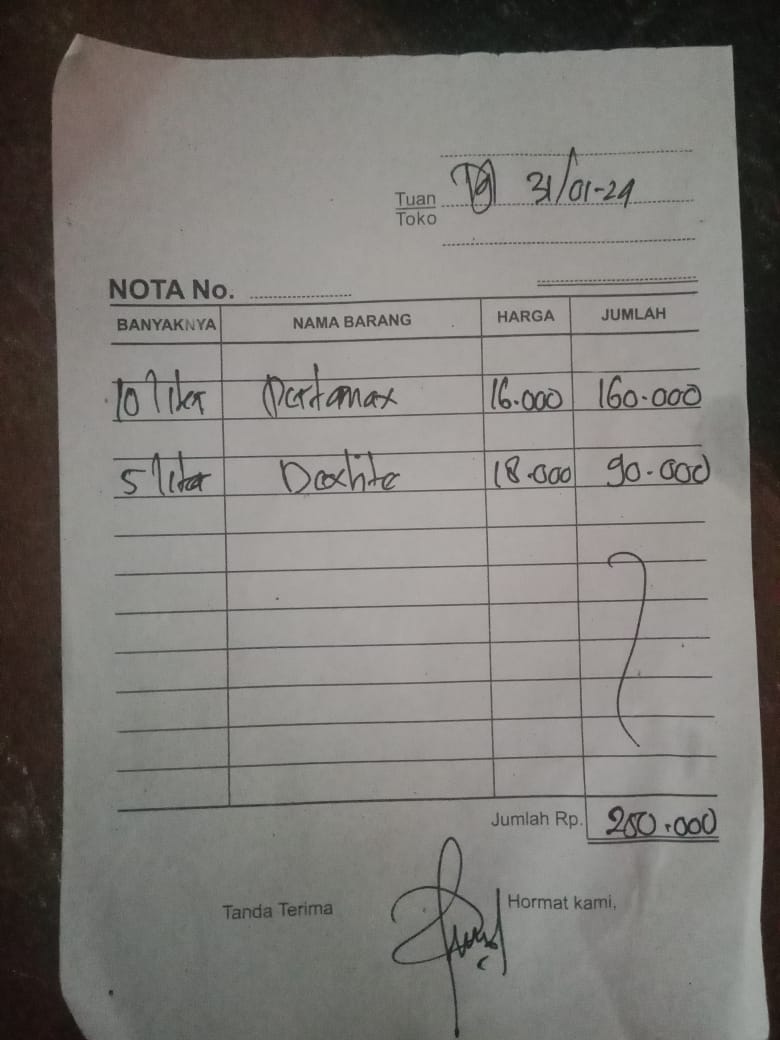 Tuan
Toko
Tgl 31/01-24
NOTA No.
BANYAKNYA NAMA BARANG HARGA JUMLAH
10 liter Pertamax 16.000 160.000
5 liter Dexlite 18.000 90.000
Jumlah Rp. 250.000
Tanda Terima
Hormat kami,